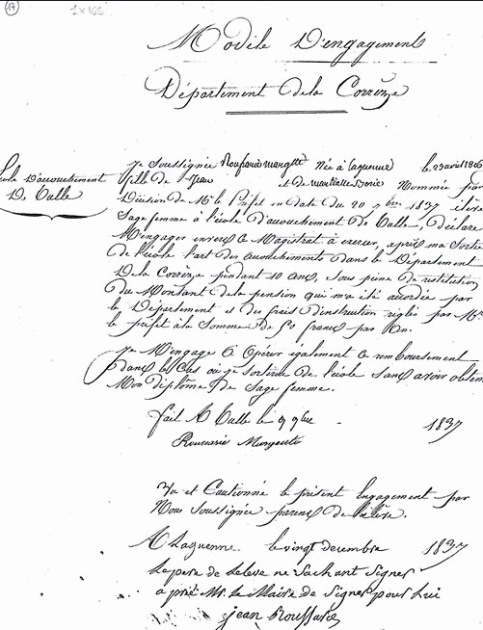 17
Modèle D'engagement
Département de la Corrèze
école D'accouchement
De Tulle
Je Soussignée Née à Laguenne le 23 avril 1806
fille de Jean et de Nommée par
Décision de Mr le Préfet en date du 20 9bre 1837 élève
Sage femme à l'école d'accouchement de Tulle, déclare
M'engager envers ce Magistrat à exercer, après ma Sortie
de l'école l'art des accouchements dans le Département
De la Corrèze pendant 10 ans, sous peine de restitution
du Montant de la pension qui m'a été accordée par
le Département et des frais d'instruction réglés par Mr
le préfet à la Somme de francs par An.
Je M'engage à Opérer également ce remboursement
dans le Cas où je Sortirai de l'école sans avoir obtenu
Mon Diplôme de Sage femme.
fait A Tulle le 9 9bre 1837
Vu et Cautionné le présent Engagement par
Nous Soussignés parens de l'élève.
A Laguenne le vingt decembre 1837
Le pere de leleve ne Sachant Signer
a prié Mr. le Maire de Signer pour Lui
jean